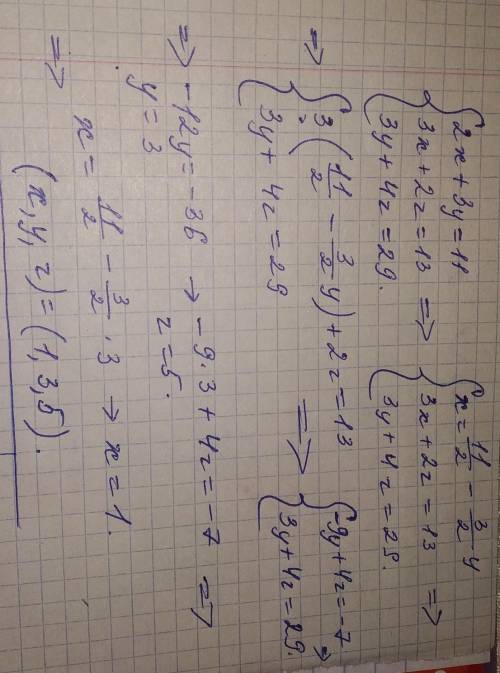 {2x + 3y = 11
{3x + 2z = 13 ⇒ {x = 11/2 - 3/2 y
{3y + 4z = 29. {3x + 2z = 13 ⇒
{3y + 4z = 29.
⇒ {3·(11/2 - 3/2 y) + 2z = 13 ⇒ {-9y + 4z = -7 ⇒
{3y + 4z = 29 {3y + 4z = 29.
⇒ -12y = -36 → -9·3 + 4z = -7 ⇒
y = 3 z = 5.
x = 11/2 - 3/2 · 3 → x = 1.
⇒ (x, y, z) = (1, 3, 5).